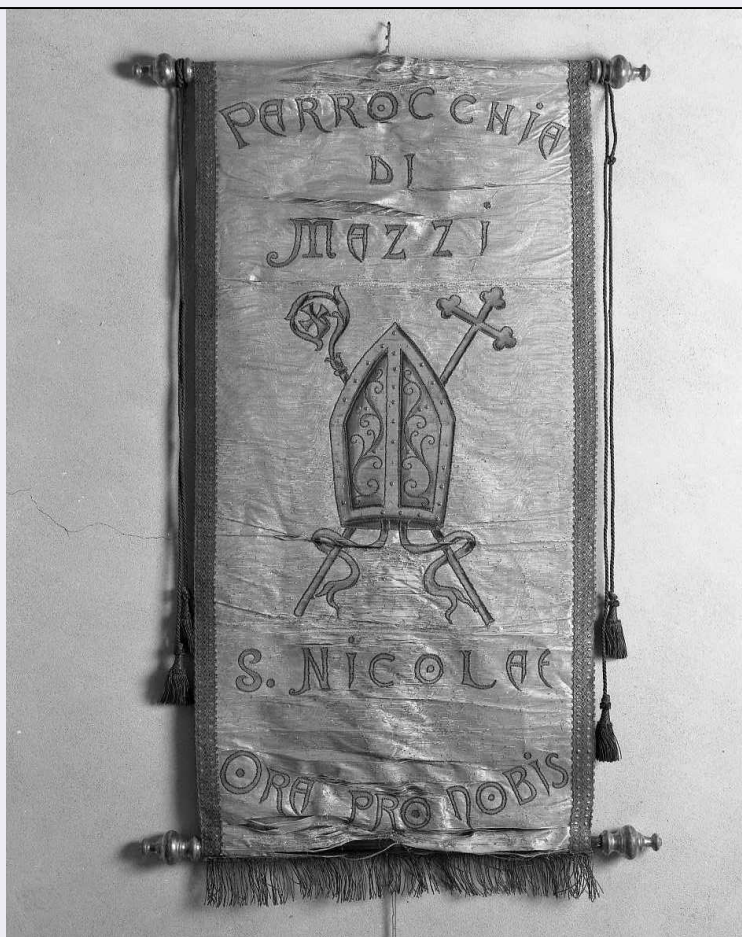 PARROCCHiA
DI
MAZZi
S. NiCOLAE
ORA PRO NOBiS